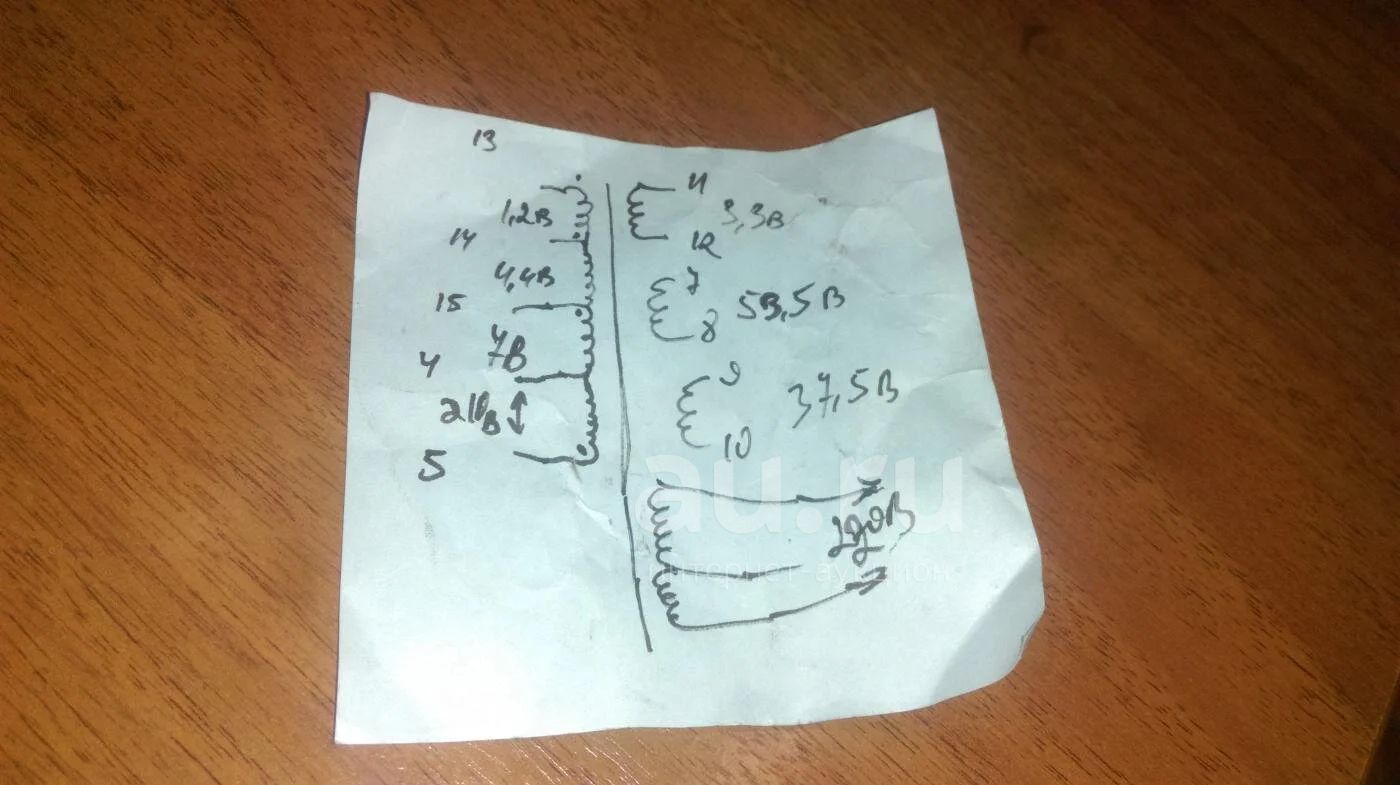 13
11
1,2В
3,3В
14
12
4,4В
7
15
5В,5В
8
4
7В
9
37,5В
5
10
au.ru
интернет-аукцион